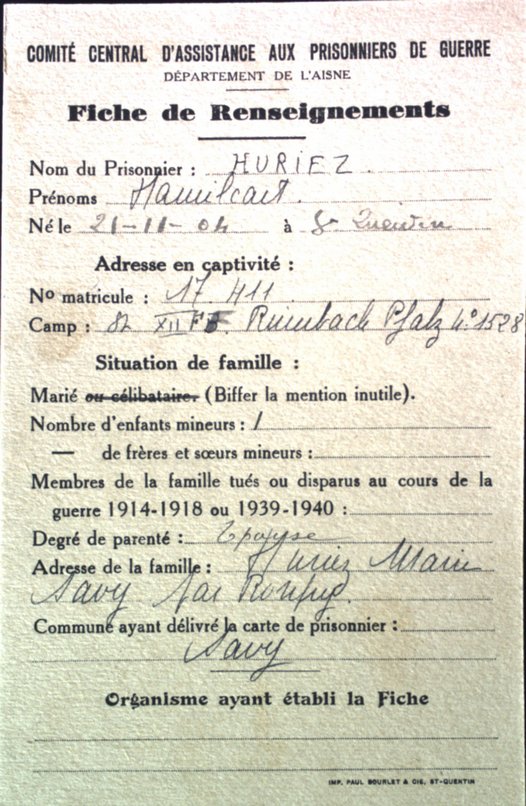 COMITÉ CENTRAL D'ASSISTANCE AUX PRISONNIERS DE GUERRE
DÉPARTEMENT DE L'AISNE
Fiche de Renseignements
Nom du Prisonnier : HURIEZ
Prénoms Hamilcart
Né le 21-11-04 à St Quentin
Adresse en captivité :
No matricule : 17.411
Camp : XII F Rumbach Pfalz No 1528
Situation de famille :
Marié ou célibataire. (Biffer la mention inutile).
Nombre d'enfants mineurs : 1
— de frères et sœurs mineurs :
Membres de la famille tués ou disparus au cours de la
guerre 1914-1918 ou 1939-1940 :
Degré de parenté : Epouse
Adresse de la famille : Huriez Marie
Savy par Roupy.
Commune ayant délivré la carte de prisonnier :
Savy
Organisme ayant établi la Fiche
IMP. PAUL BOURLET & CIE, ST-QUENTIN